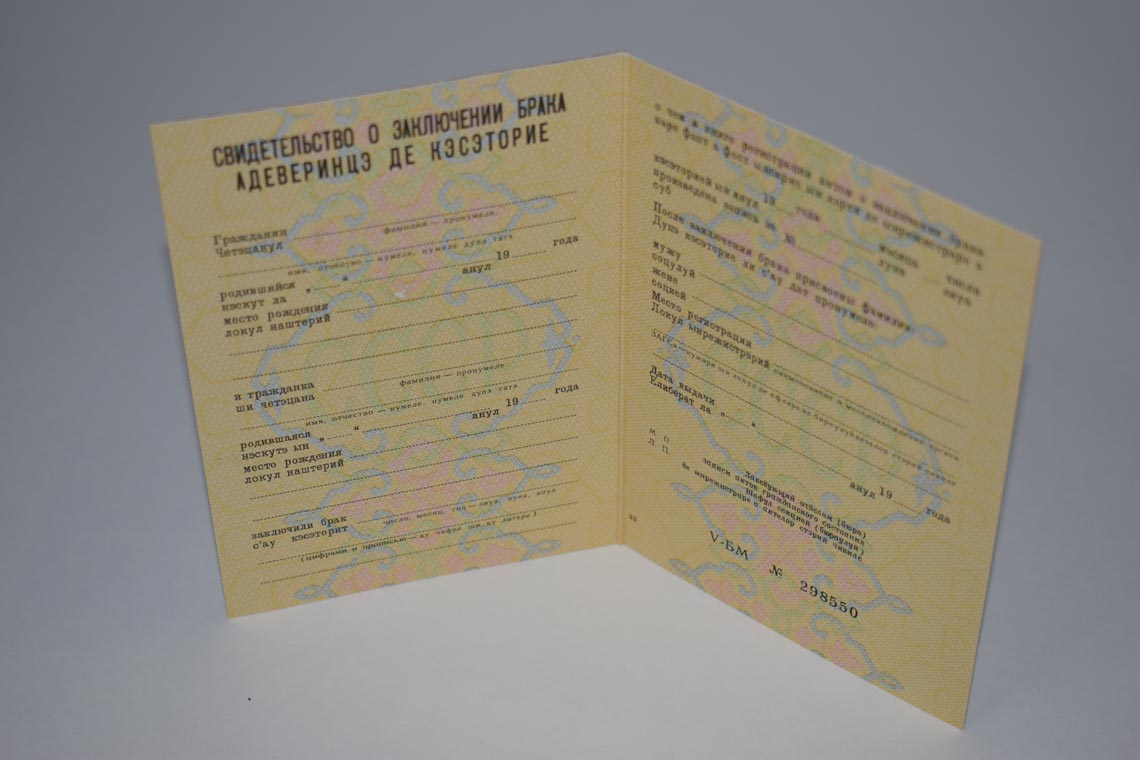 СВИДЕТЕЛЬСТВО О ЗАКЛЮЧЕНИИ БРАКА
АДЕВЕРИНЦЭ ДЕ КЭСЭТОРИЕ
Гражданин
Четэцанул
Фамилия — пронумеле.
имя, отчество — нумеле, нумеле дупэ татэ
родившийся „ “ 19 года
нэскут ла анул
место рождения
локул наштерий
и гражданка
ши четэцана
фамилия — пронумеле
имя, отчество — нумеле, нумеле дупэ татэ
родившаяся „ “ 19 года
нэскутэ ын анул
место рождения
локул наштерий
заключили брак
с'ау кэсэторит
число, месяц, год — зиуа, луна, анул
(цифрами и прописью — ку чифре ши ку литере)
о чем в книге регистрации актов о заключении брака
каре фапт а фост ынскрис ын картя де ынрежистраре а
кэсэторией ын анул 19 года месяца числа
луна зиуа
произведена запись за №
суб
После заключения брака присвоены фамилии
Дупэ кэсэторие ли с'ау дат пронумеле:
мужу
соцулуй
жене
социей
Место регистрации
Локул ынрежистрэрий
наименование и местонахождение органа
ЗАГСа — нумиря ши локул де афларе ал бироулуй актелор стэрий чивиле
Дата выдачи „ “ 19 года
Елиберат ла анул
М. П.
Л. П.
Заведующий отделом (бюро)
записи актов гражданского состояния
Шефул секцией (бироулуй)
де ынрежистраре а актелор стэрий чивиле
V-БМ № 298550